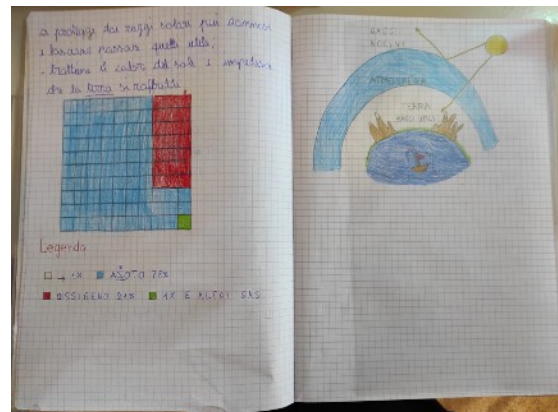 ci protegge dai raggi solari più dannosi
e lasciano passare quelli utili.
- trattiene il calore del sole e impedisce
che la terra si raffreddi
Legenda
→ 1% AZOTO 78%
OSSIGENO 21% 1% E ALTRI GAS
RAGGI
NOCIVI
ATMOSFERA
TERRA
RAGGI UTILI